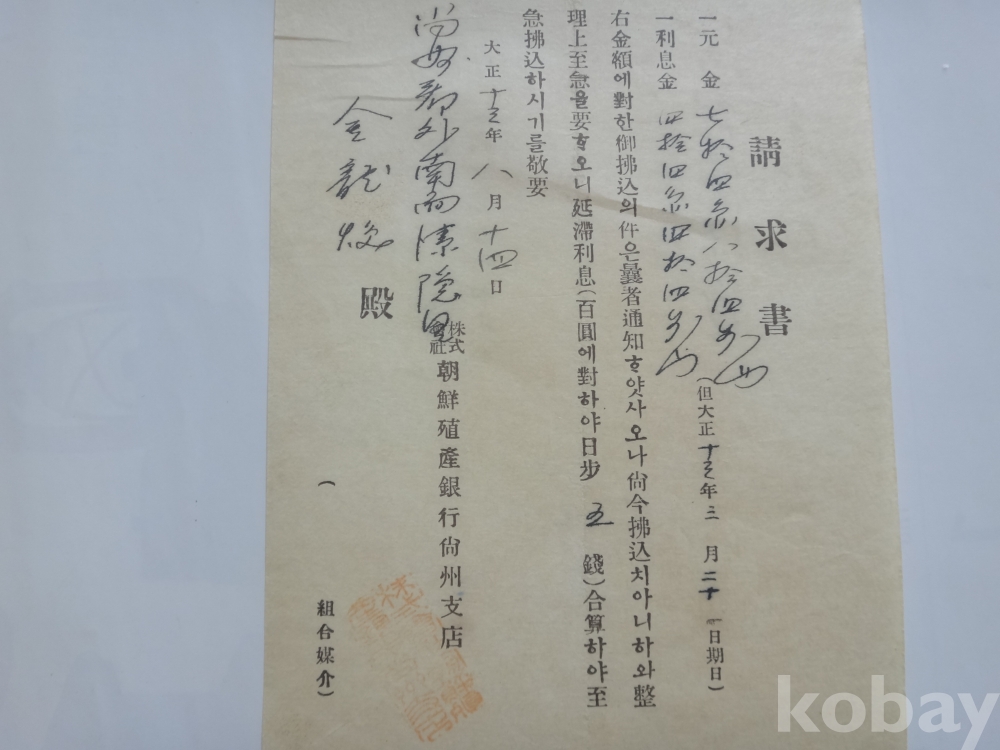 請求書
一元金 七拾四円八拾四戔也
(但大正十三年三月二十一日期日)
一利息金 四拾四円四拾四戔也
右金額에對한御拂込의件은曩者通知ᄒᆞ얏사오나尙今拂込치아니하와整
理上至急을要ᄒᆞ오니延滯利息(百圓에對하야日步五錢)合算하야至
急拂込하시기를敬要
大正十三年八月十四日
株式會社朝鮮殖産銀行尙州支店
尙州郡外南面 隠里
金龍煥 殿
(組合媒介)
kobay